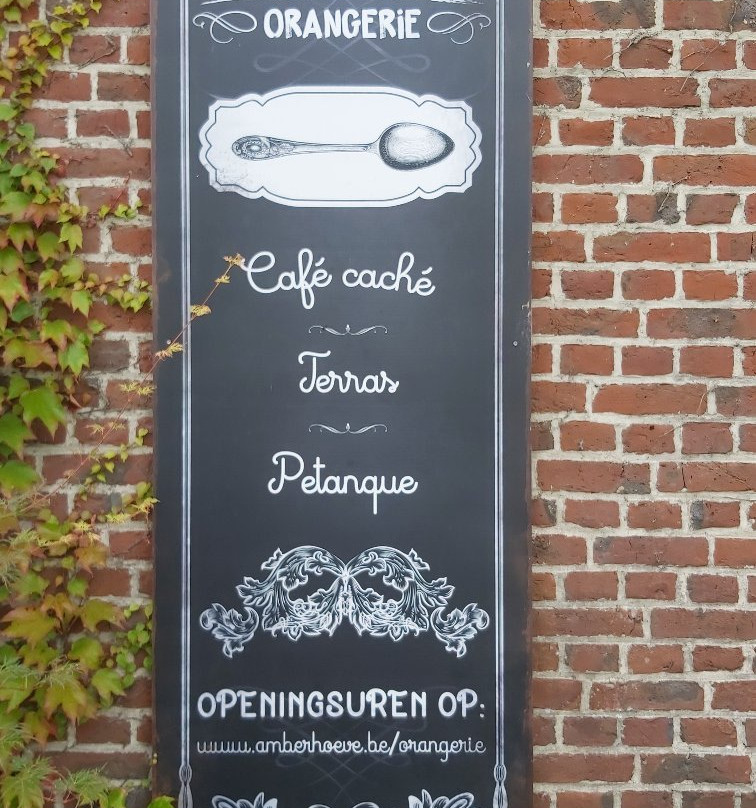 ORANGERIE
Café caché
Terras
Petanque
OPENINGSUREN OP:
www.amberhoeve.be/orangerie